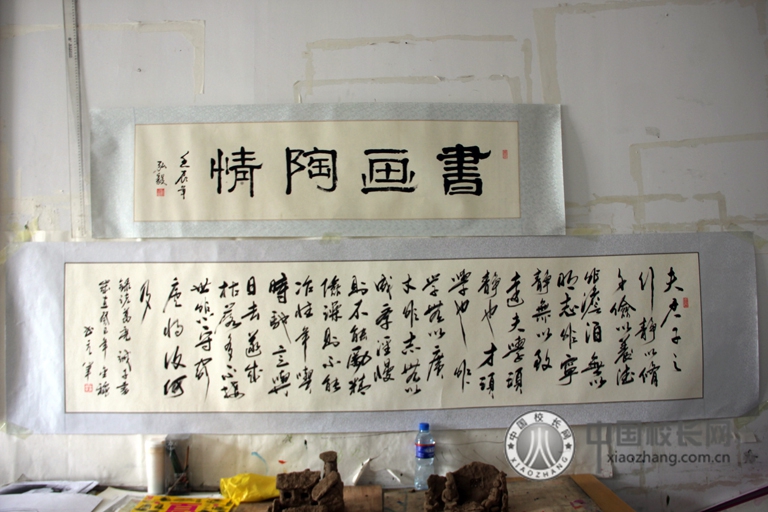 書画陶情
壬辰年
弘毅
夫君子之
行靜以脩
身儉以養德
非澹泊無以
明志非寧
靜無以致
遠夫學須
靜也才須
學也非
學無以廣
才非志無以
成學淫慢
則不能勵精
險躁則不能
冶性年與
時馳意與
日去遂成
枯落多不接
世悲守窮
廬將復何
及
錄諸葛亮誡子書
中国校长网
XIAOZHANG
中国校长网
xiaozhang.com.cn